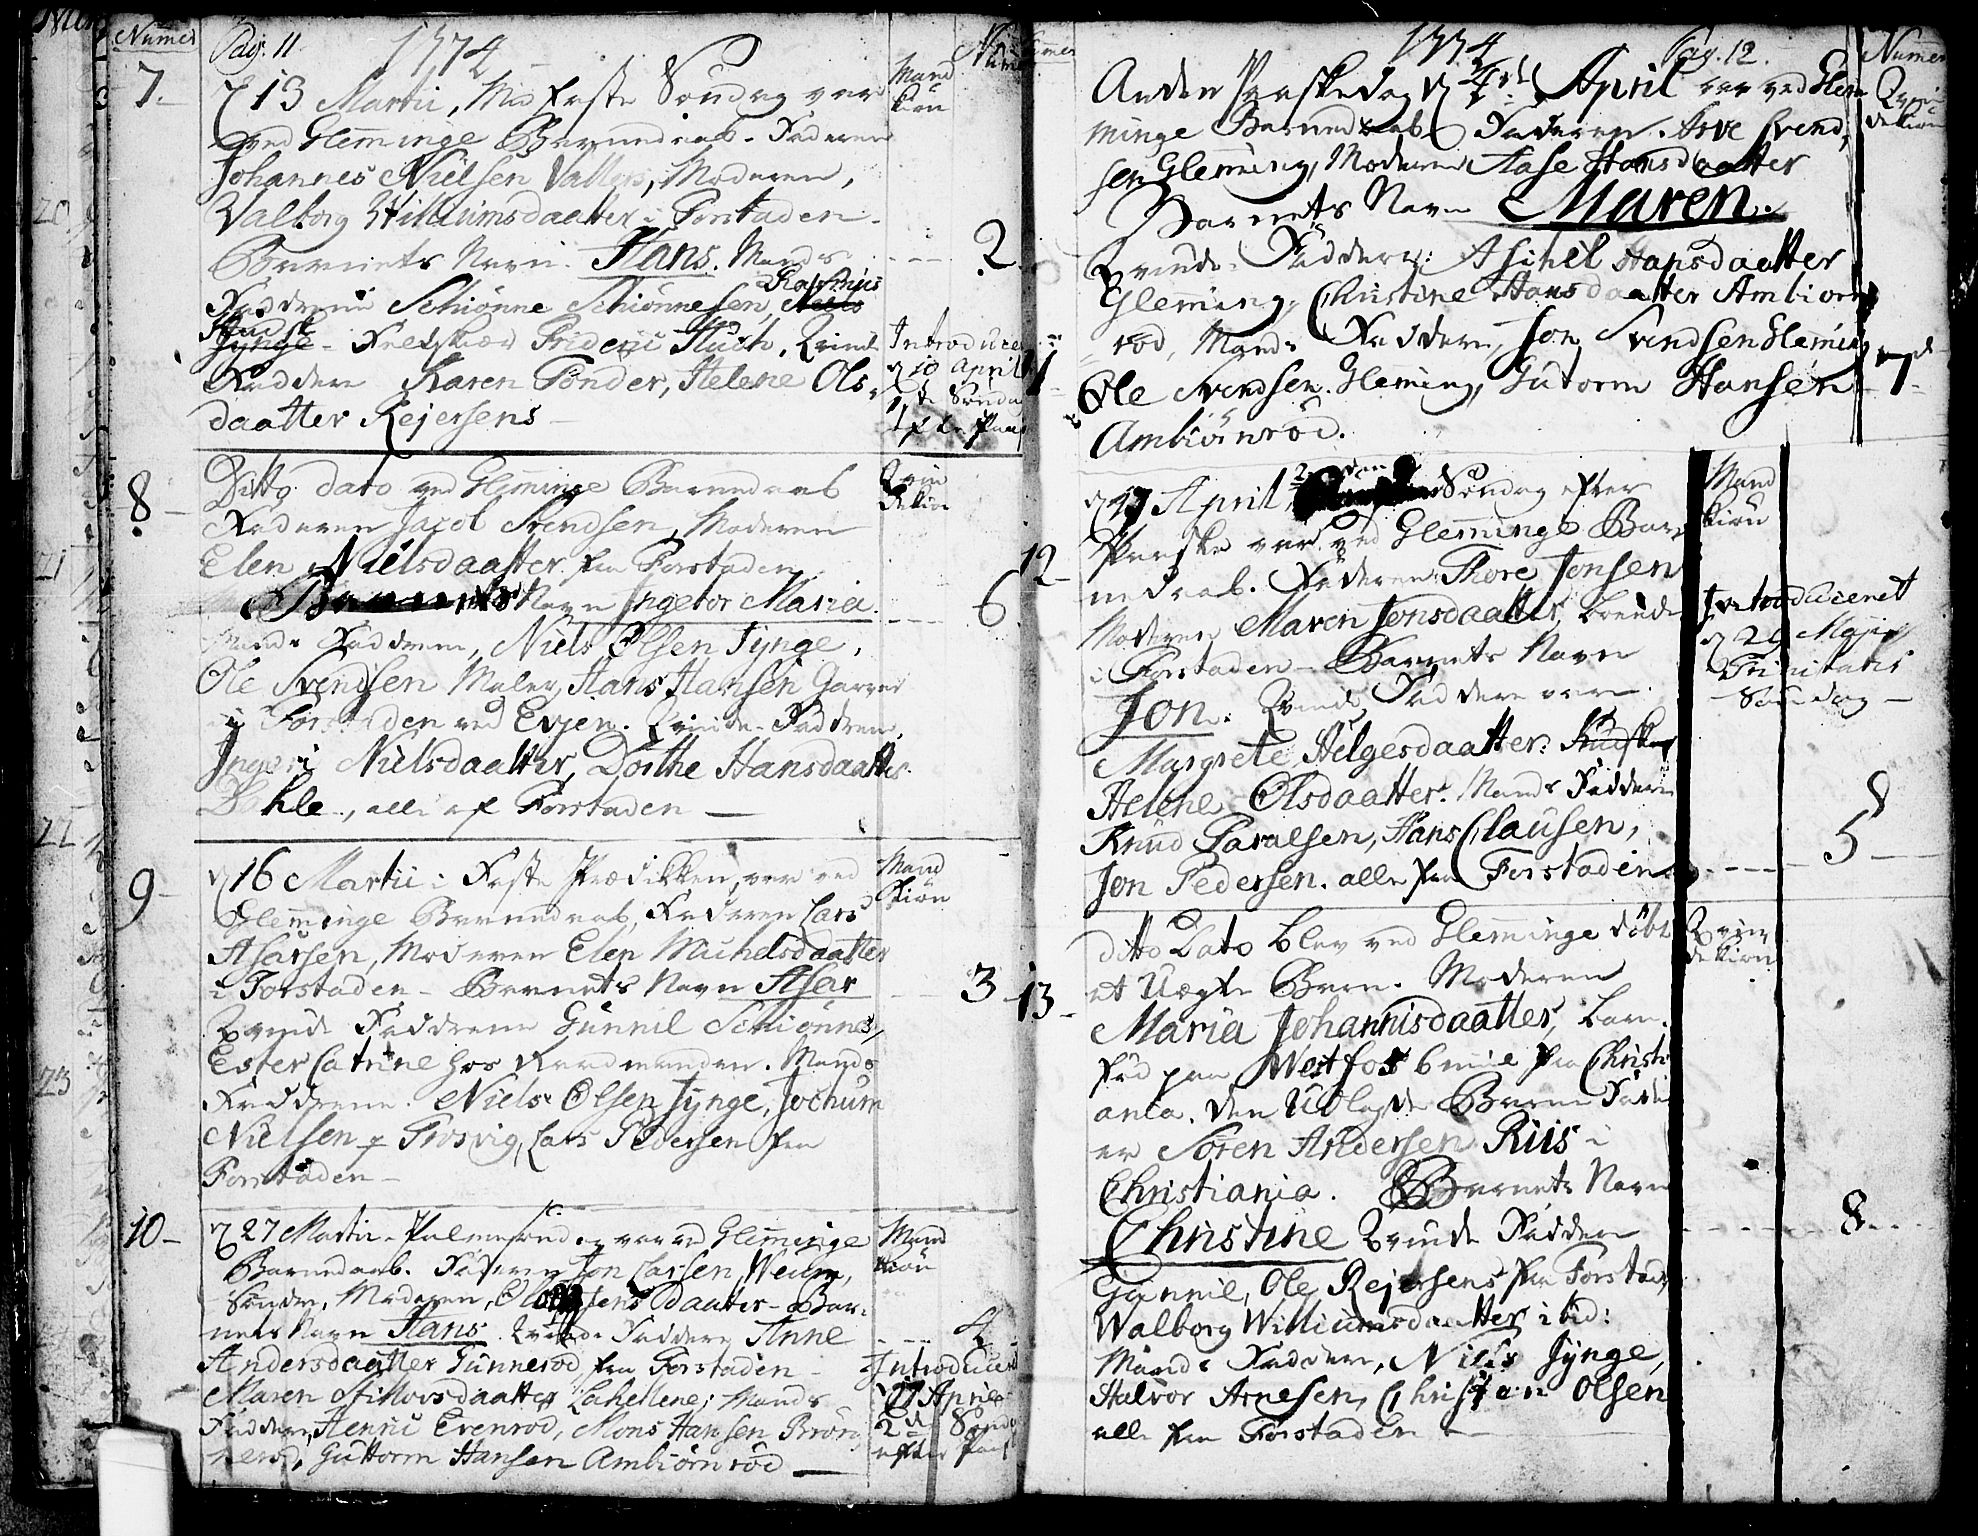 Numer
Pag. 11
1774
7.
13 Martii, Midfaste Søndag var
ved Glemminge Barnedaab. Faderen
Johannes Nielsen Vallers, Moderen,
Valborg Williumsdaatter i Forstaden.
Barnets Navn. Hans. Mands
Fadderne Schiønne Schiønnesen, Rasmus
Frideric Huth, Qvinde
Faddere Karen Tønder, Helene Ols-
daatter Rejersens
Mand
kiøn
2
Introduceret
10 April
1ste Sønda
efter Paas
8
Ditto dato ved Glemminge Barnedaab
Faderen Jacob Svendsen, Moderen
Elen Nielsdaatter fra Forstaden
Barnets Navn Ingebor Maria.
Mands Fadderne, Niels Olsen Tynge,
Ole Svendsen Maler, Hans Hansen Garver
i Forstaden ved Evjen. Qvinde-Faddren,
Ingeri Nielsdaatter, Dorthe Hansdaatter
alle af Forstaden
Qvin
dekiøn
6
9
16 Martii i Faste Prædikken, var ved
Glemminge Barnedaab, Faderen Lars
Asarsen, Moderen Elen Michelsdaatter
i Forstaden - Barnets Navn Asar
Qvinde Fadderne Gunnil Schiønnes,
Ester Catrine hos Mands
Fadderne. Niels Olsen Tynge, Jochum
Nielsen Trosvig, Lars Pedersen fra
Forstaden
Mand
kiøn
3
10
27 Martii Palmesøndag var ved Glemminge
Barnedaab. Faderen Jon Larsen Weum,
Søndre, Moderen, daatter Bar-
nets Navn Hans. Qvinde Faddere Anne
Andersdaatter Gunnerød, fra Forstaden
Maren daatter Labellene; Mands
Faddere, Henric Evenrød, Mons Hansen
nerød, Guttorm Hansen Ambiørnrød
Mand
kiøn
4
Introduceret
17 April
2den Sønd
efter Paas
1774
Pag. 12.
Numer
Anden Paaskedag 4de April var ved Glem-
minge Barnedaab Faderen. Arve Svend-
sen Glemming, Moderen Aase Hansdaatter
Barnets Navn Maren.
Qvinde Faddere: Aschil Hansdaatter
Glemming, Christine Hansdaatter Ambiørn-
rød, Mands Faddere, Jon Svendsen Glemming
Ole Svendsen Glemming, Gutorm Hansen
Ambiørnrød.
Qvin
dekiøn
7
12
17 April 2den Søndag efter
Paaske var ved Glemminge Bar-
nedaab. Faderen Thore Jonsen
Moderen Maren Jonsdaatter, boende
i Forstaden - Barnets Navn
Jon. Qvinde Faddere vare
Margrete Helgesdaatter.
Helene Olsdaatter. Mands Faddere
Knud Paralsen, Hans Clausen,
Jon Pedersen. alle fra Forstaden
Mand
kiøn
Introduceret
29 Maji
Trinitatis
Søndag
8
5
13
ditto Dato blev ved Glemminge døbt
et Uægte Barn. Moderen
Maria Johannisdaatter, barn-
fød paa Westfos 6 mile fra Christi-
ania. Den Udlagde Barne Fader
er Søren Andersen Riis i
Christiania. Barnets Navn
Christine Qvinde Faddere
Gunnil, Ole Rejersens fra Forstad,
Walborg Williumsdaatter ibid:
Mands Faddere, Niels Tynge,
Halvor Arnesen, Christian Olsen
alle fra Forstaden
Qvin
dekiøn
8